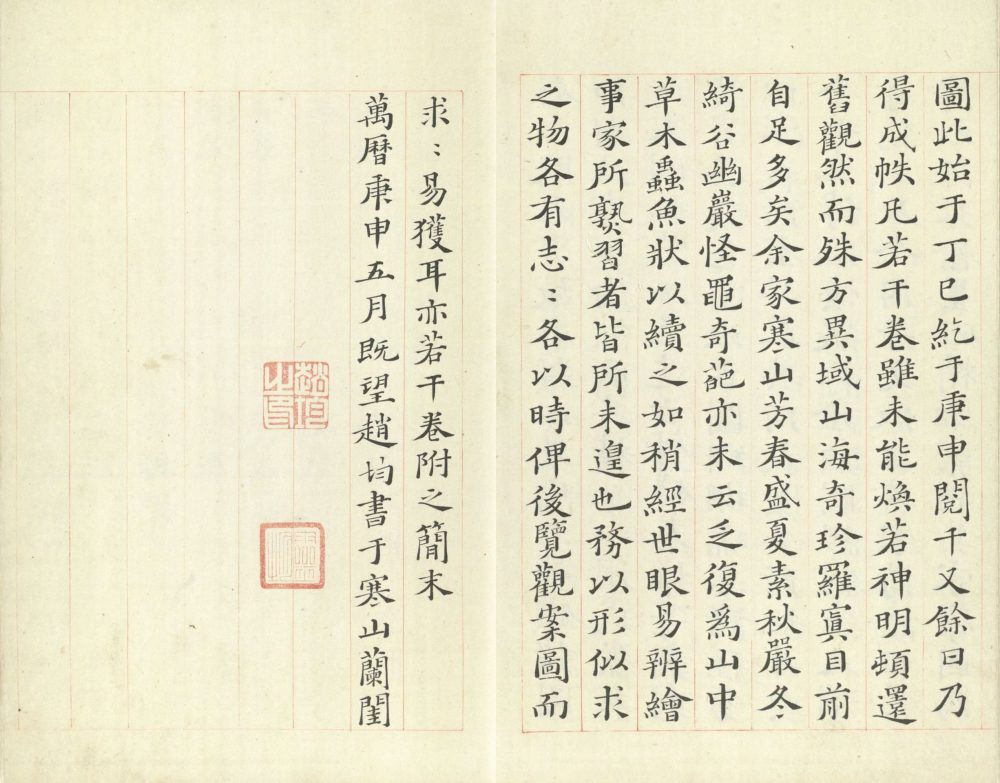 圖此始于丁巳紇于庚申閱千又餘日乃
得成帙凡若干卷雖未能煥若神明頓還
舊觀然而殊方異域山海奇珍羅寘目前
自足多矣余家寒山芳春盛夏素秋嚴冬
綺谷幽巖怪黽奇葩亦未云乏復爲山中
草木蟲魚狀以續之如稍經世眼易辨繪
事家所熟習者皆所未遑也務以形似求
之物各有志〻各以時俾後覽觀案圖而
求〻易獲耳亦若干卷附之簡末
萬曆庚申五月既望趙均書于寒山蘭閨
趙均之印